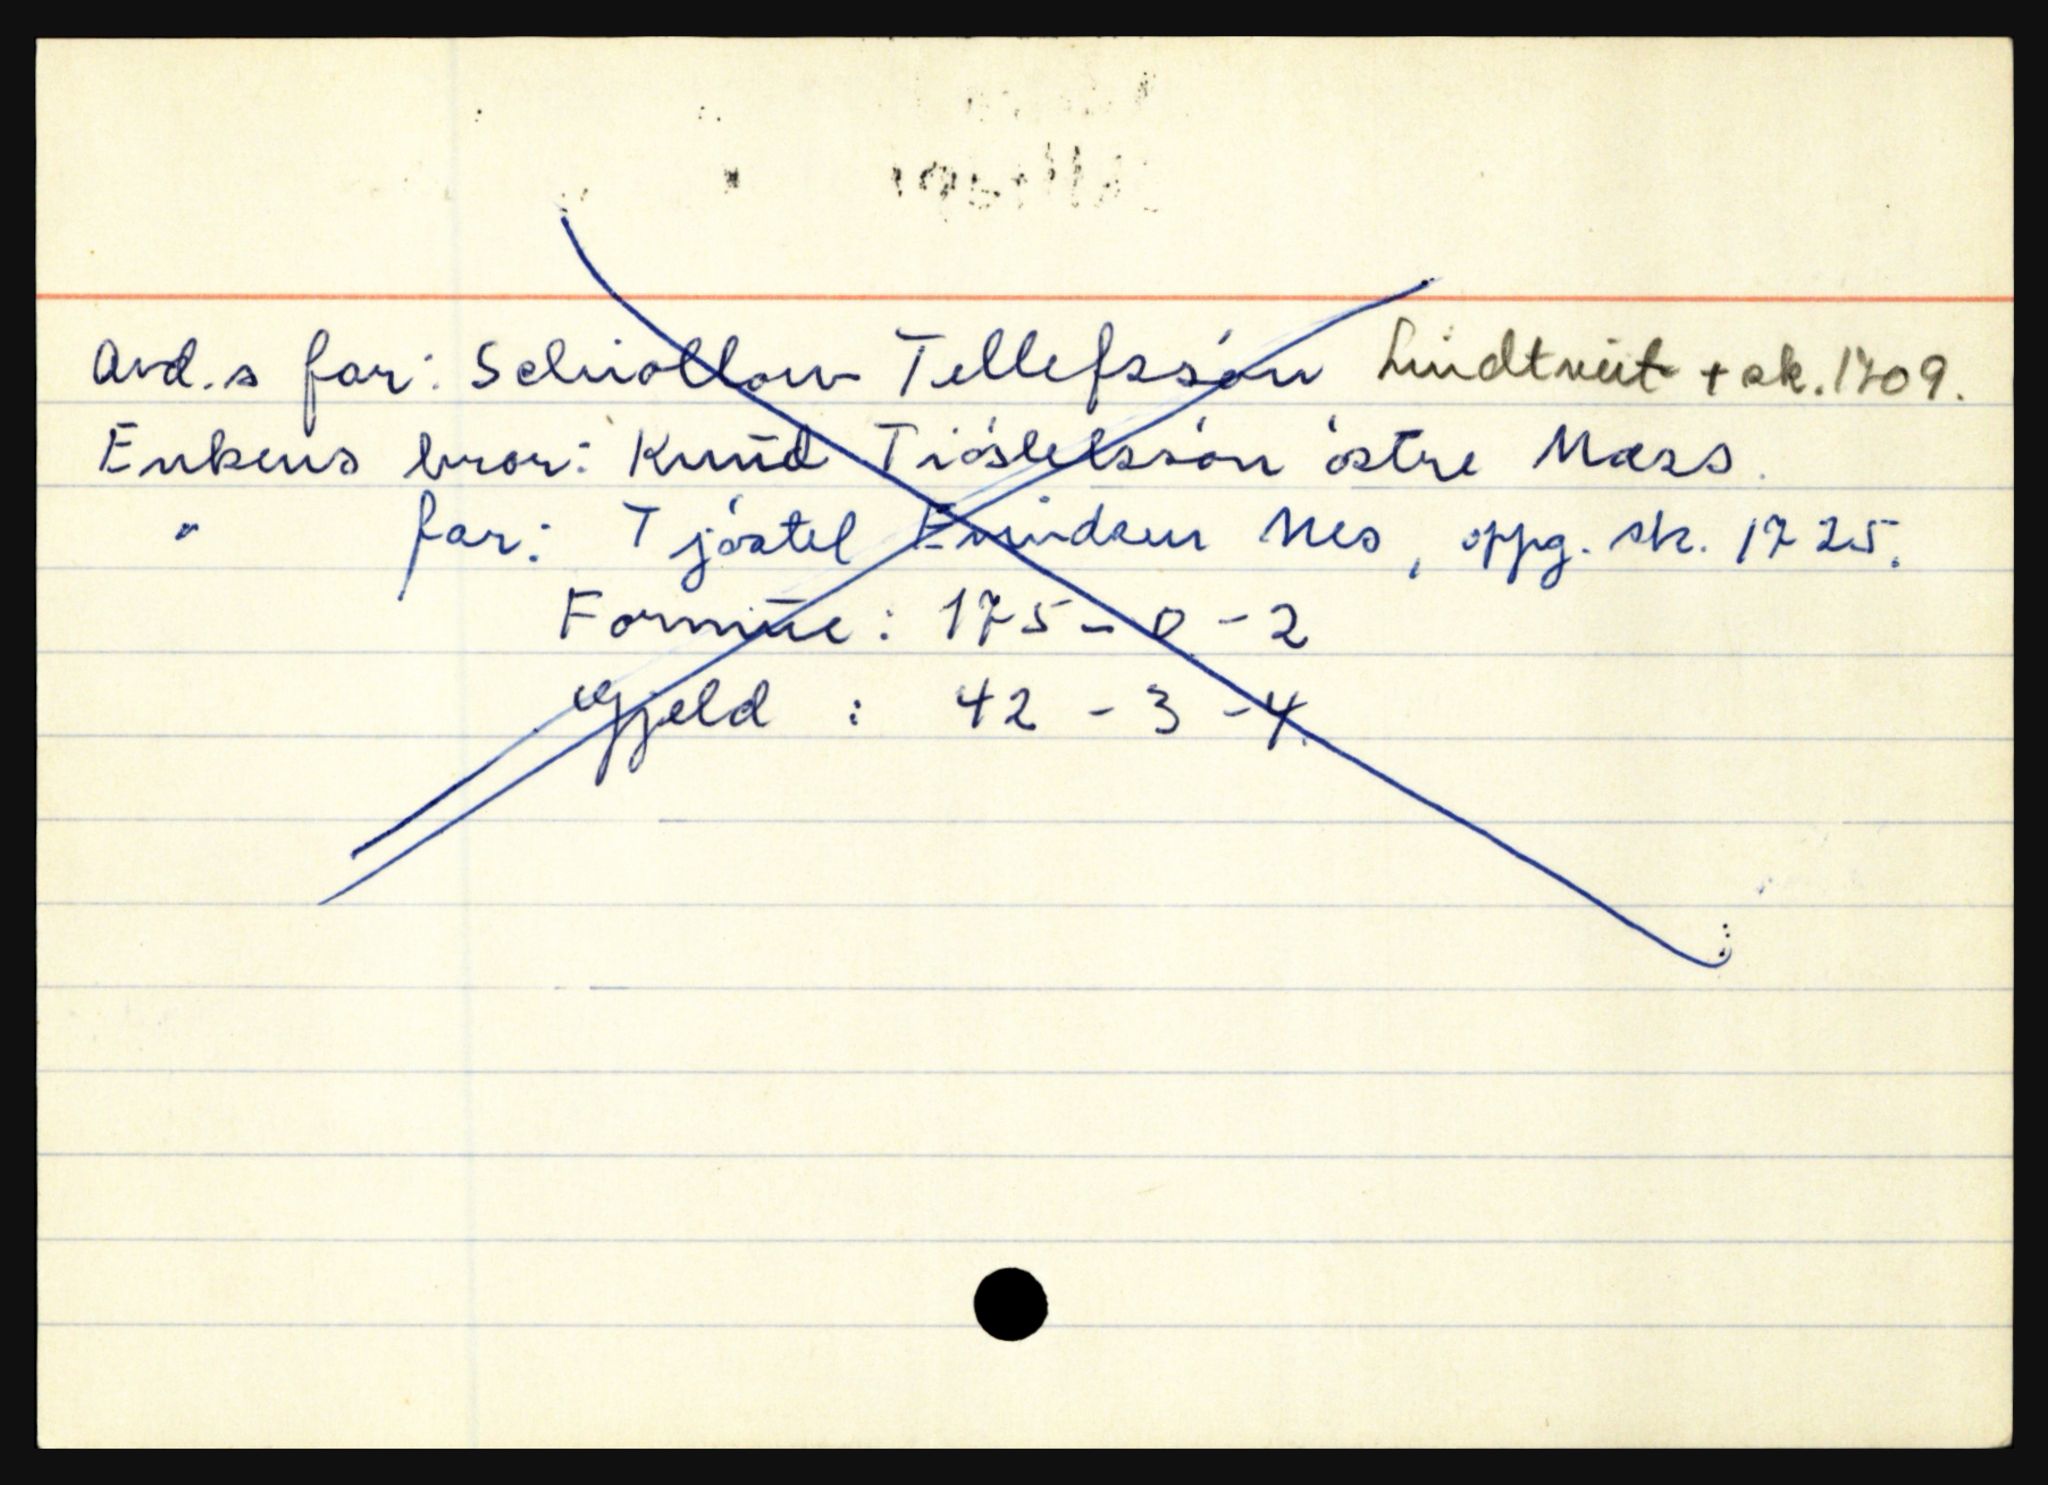 Avd.s far: Schiollow Tellefssón Lindtveit + sk. 1709.
Enkens bror: Knud Tióslelssón óstre Næss.
" far: Tjóstel Enindsen Nes, oppg. sk. 1725.
Formue: 175 - 0 - 2
Gjeld : 42 - 3 - 4.